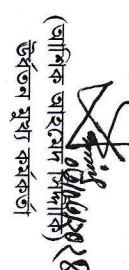 (আনিক আহমেদ সিদ্দিক)
ঊর্ধ্বতন মুখ্য কর্মকর্তা